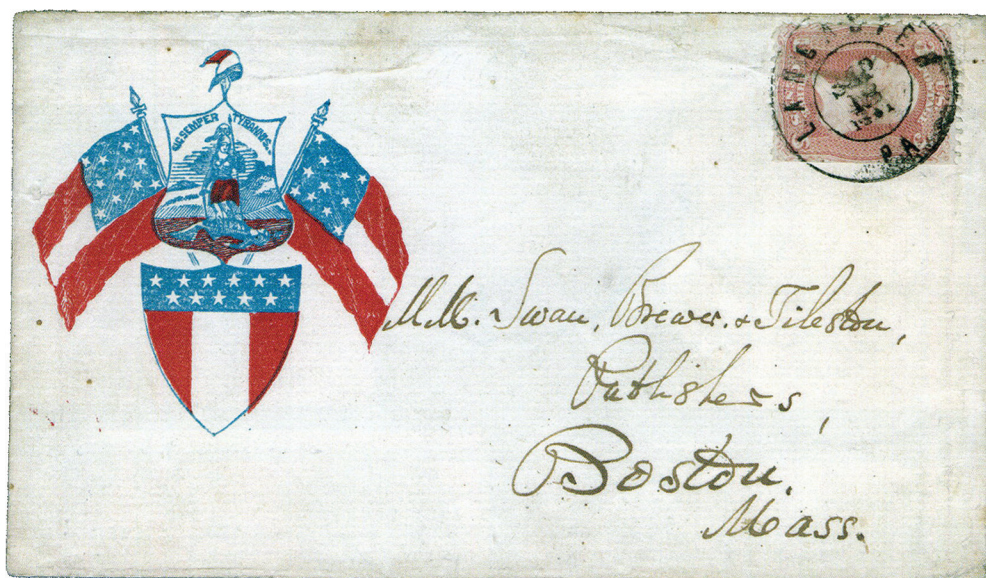 SIC SEMPER TYRANNIS
LANCASTER
PA
MM. Swan, Brewer. & Tileston,
Publishers,
Boston,
Mass.